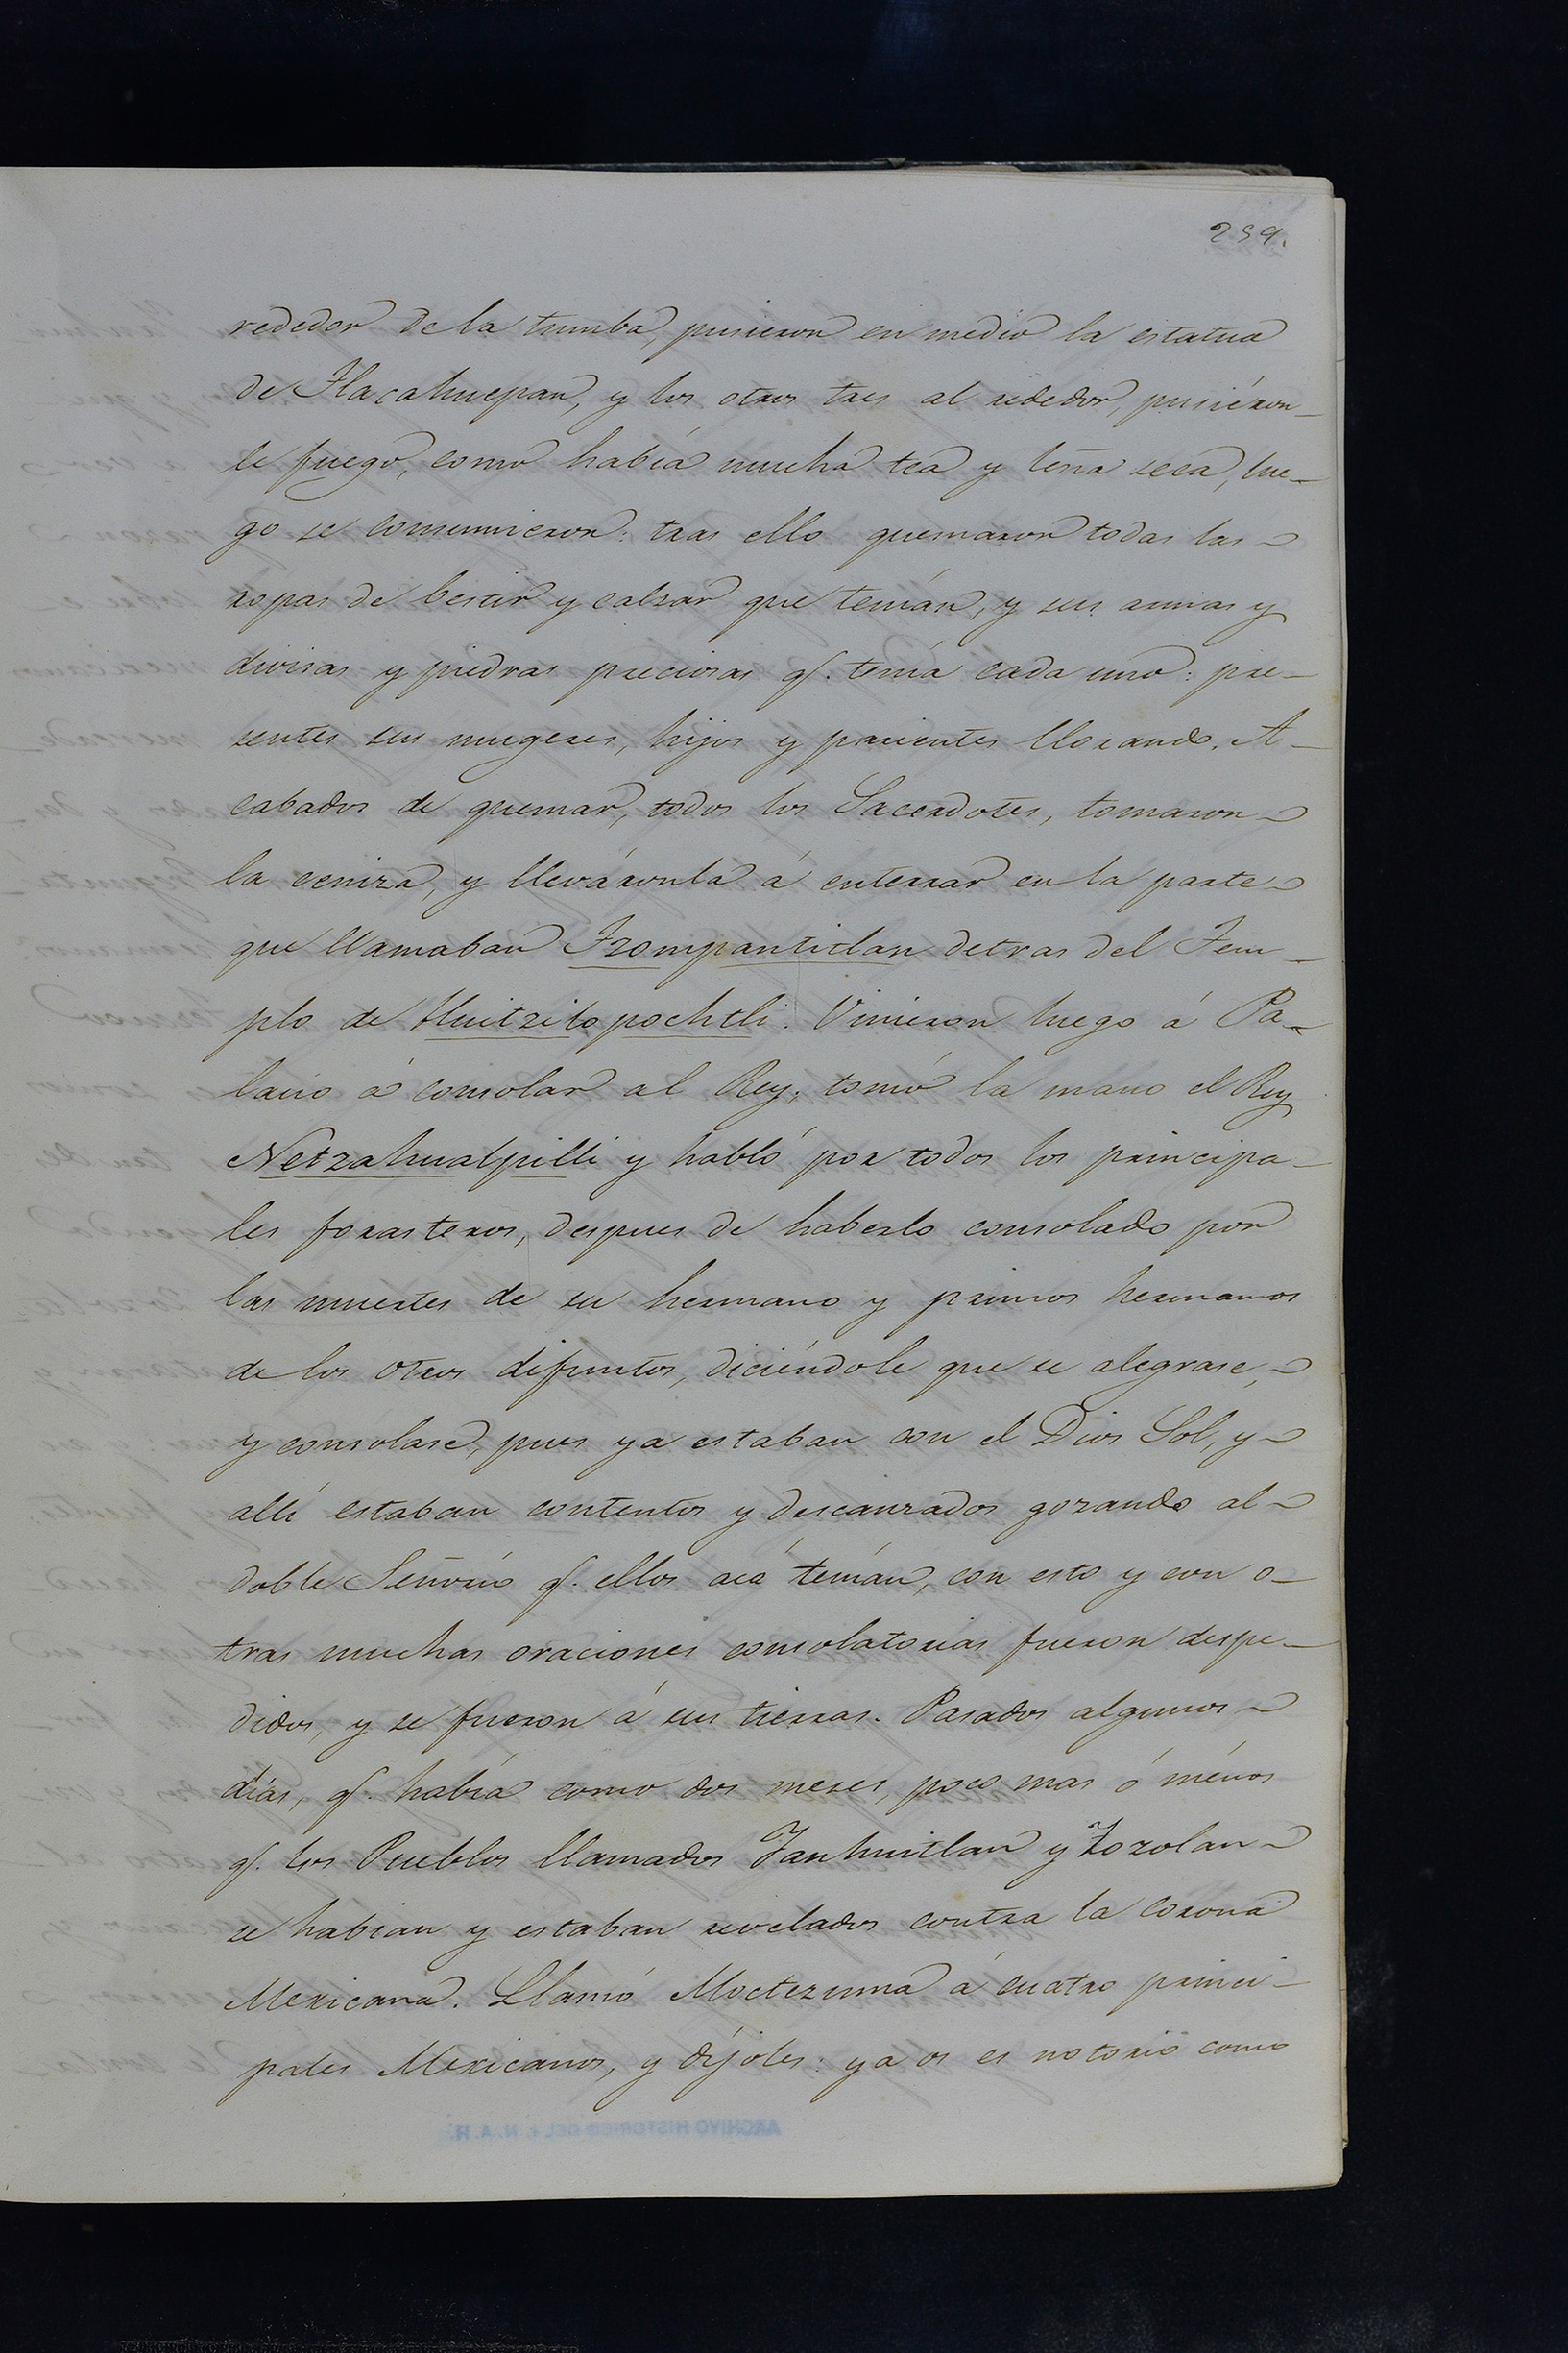 259.
rededor de la tumba, pusieron en medio la estatua
de Tlacahuepan, y los otros tres al rededor, pusiéron-
le fuego, como había mucha tea y leña seca, lue-
go se consumieron: tras ello quemaron todas las
ropas de bestir y calzar que tenían, y sus armas y
divisas y piedras preciosas q. tenía cada uno: pre-
sentes sus mugeres, hijos y parientes llorando. A-
cabados de quemar, todos los Sacerdotes, tomaron
la ceniza, y lleváronla á enterrar en la parte
que llamaban Tzompantitlan detras del Tem-
plo de Huitzilopochtli. Vinieron luego á Pa-
lacio á consolar al Rey, tomó la mano el Rey
Netzahualpilli y habló por todos los principa-
les forasteros, despues de haberlo consolado por
las muertes de su hermano y primos hermanos
de los otros difuntos, diciéndole que se alegrase,
y consolase, pues ya estaban con el Dios Sol, y
allí estaban contentos y descanzados gozando al
doble Señorío q. ellos acá tenían, con esto y con o-
tras muchas oraciones consolatorias fueron despe-
didos, y se fueron á sus tierras. Pasados algunos
días, q. había como dos meses, poco mas ó ménos
q. los Pueblos llamados Yanhuitlan y Zozolan
se habian y estaban revelados contra la corona
Mexicana. Llamó Moctezuma á cuatro princi-
pales Mexicanos, y díjoles: ya os es notorio como
ARCHIVO HISTORICO DEL I. N. A. H.